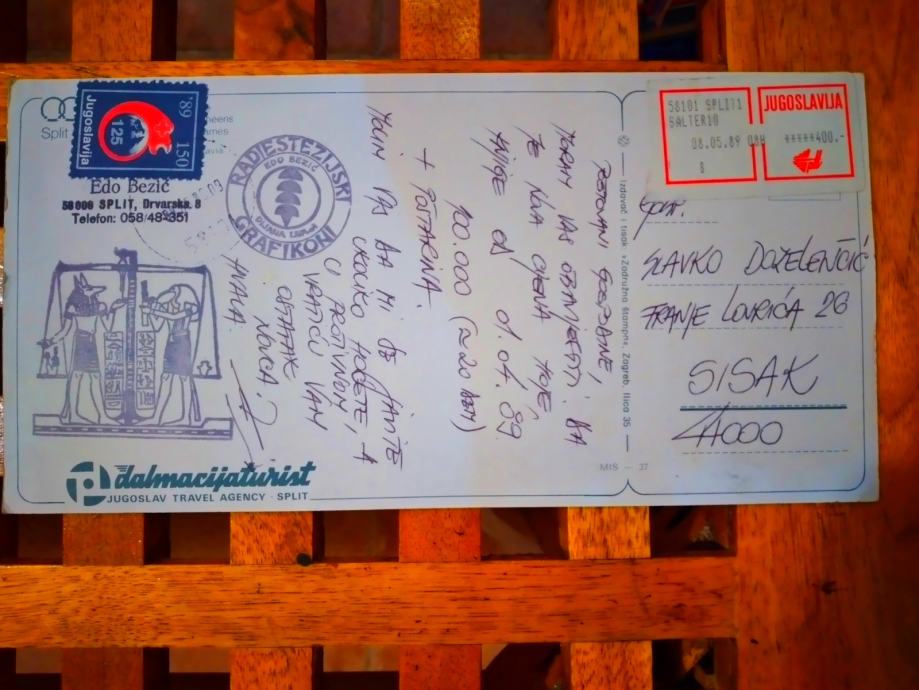 Split
'89
150
125
Jugoslavija
Edo Bezić
58000 SPLIT, Drvarska 8
Telefon: 058/48-351
RADIESTEZIJSKI
EDO BEZIĆ
GRAFIKONI
MORAM VAS OBAVIJESTITI DA
JE NOVA CIJENA MOJE
KNJIGE OD 01.04.89
100.000 (≈20 DEM)
+ POŠTARINA.
MOLIM VAS DA MI SE JAVITE
UKOLIKO HOĆETE, A
U PROTIVNOM
VRATIĆU VAM
OSTATAK
NOVCA.
HVALA.
dalmacijaturist
JUGOSLAV TRAVEL AGENCY · SPLIT
Izdavač i tisak »Zadružna štampa«, Zagreb, Ilica 35
MIS — 37
58101 SPLIT1
SALTER10
08.05.89 08H
8
JUGOSLAVIJA
*****400.-
SLAVKO
FRANJE LOVRIĆA 26
SISAK
44000